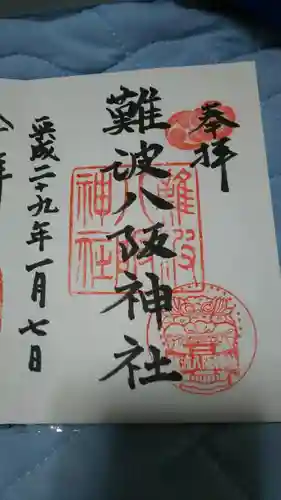 奉拝
難波八阪神社
難波
八阪
神社
平成二十九年一月七日